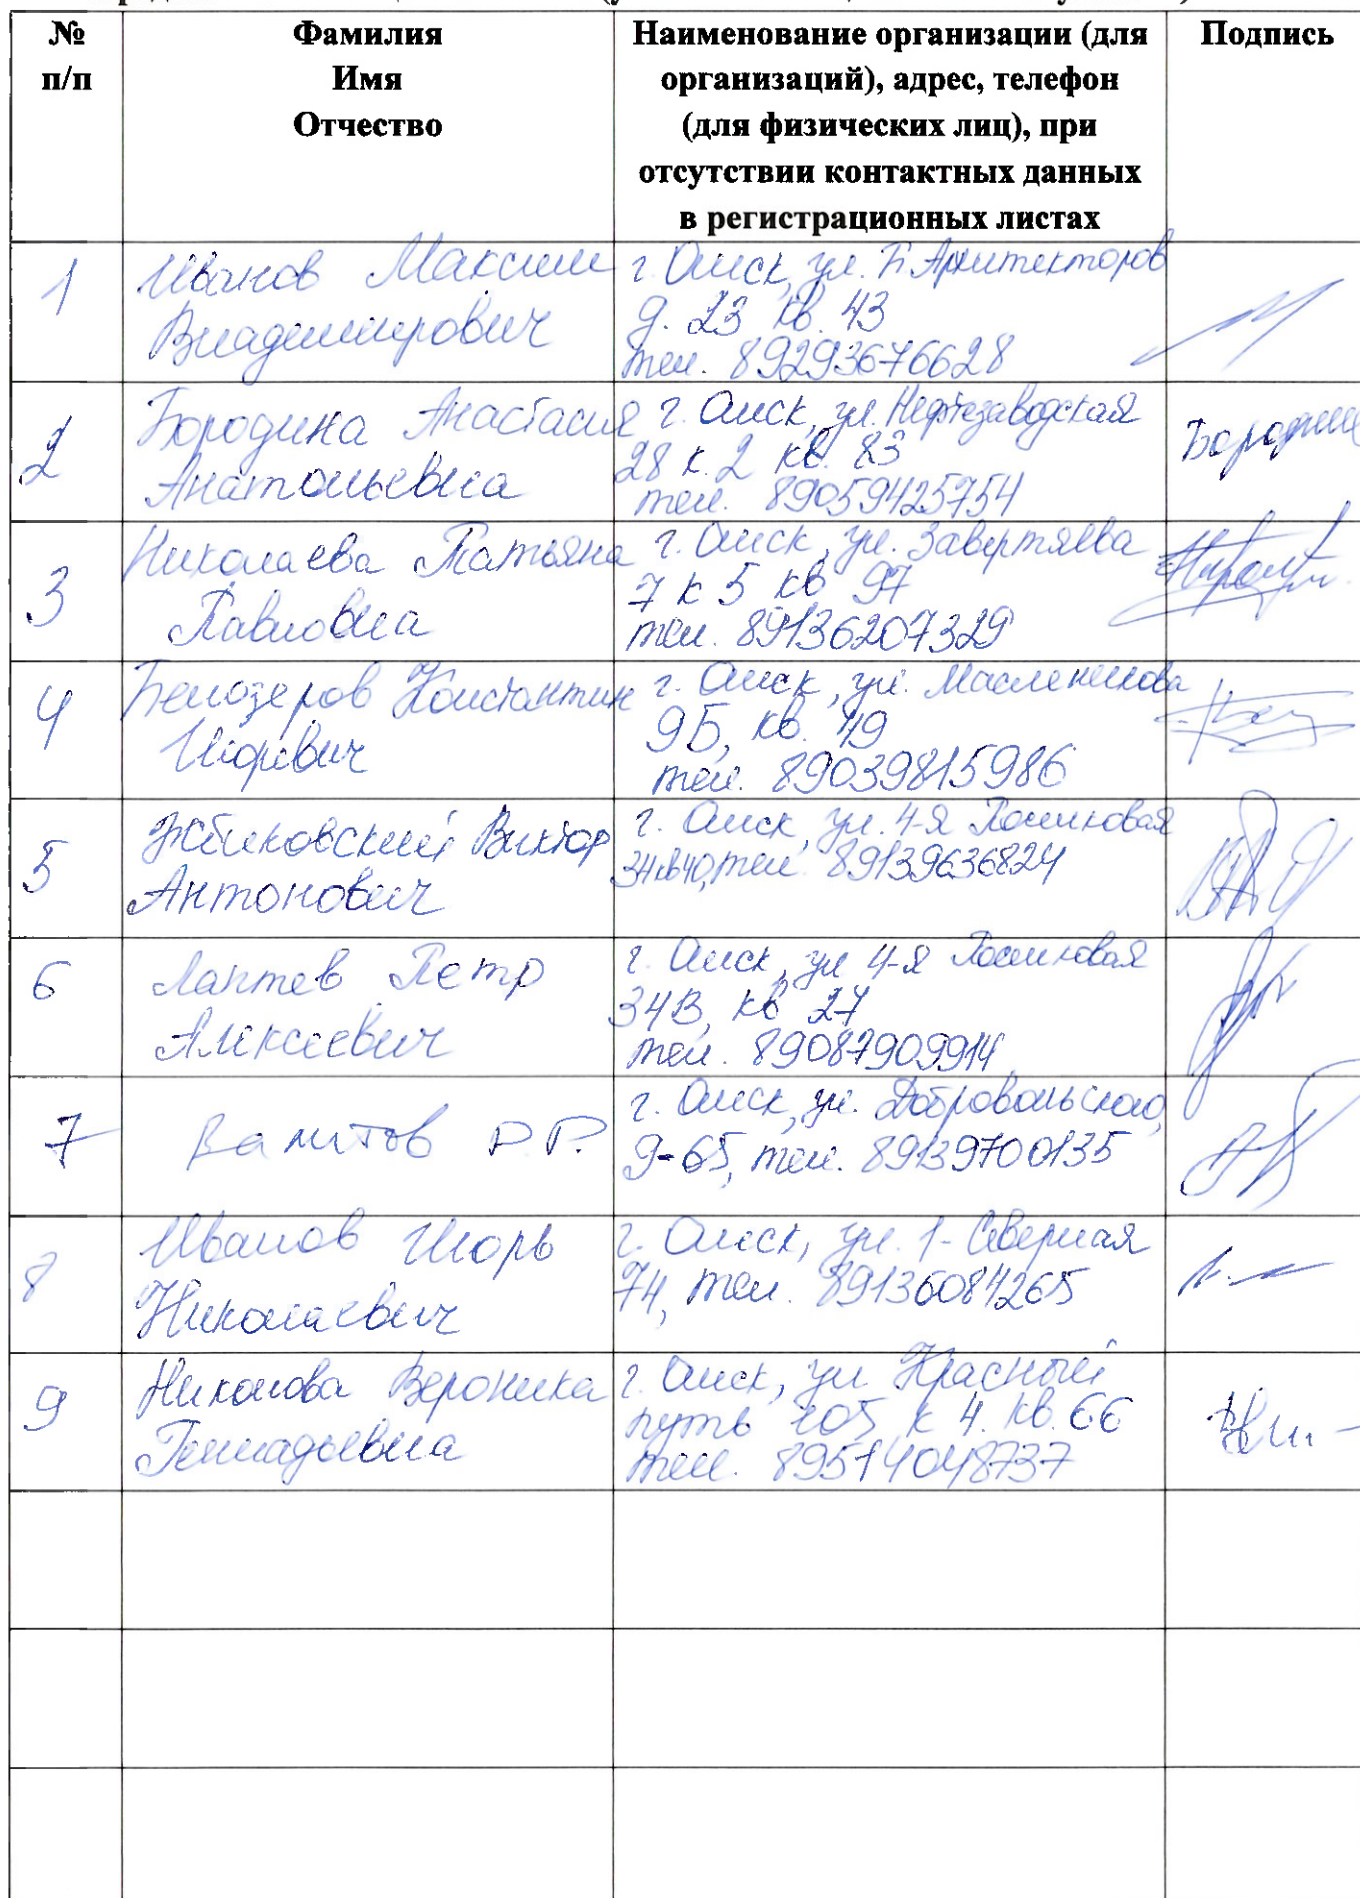 №
п/п
Фамилия
Имя
Отчество
Наименование организации (для
организаций), адрес, телефон
(для физических лиц), при
отсутствии контактных данных
в регистрационных листах
Подпись
1
Иванов Максим
Владимирович
г. Омск, ул. Б Архитекторов
д. 23 кв. 43
тел. 89293676628
2
Бородина Анастасия
Анатольевна
г. Омск, ул. Нефтезаводская
28 к. 2 кв. 83
тел. 89059425754
3
Николаева Татьяна
Павловна
г. Омск, ул. Завертяева
7 к 5 кв 97
тел. 89136207329
4
Белозеров Константин
Игоревич
г. Омск, ул. Масленикова
9Б, кв. 49
тел. 89039815986
5
Жбиковский Виктор
Антонович
г. Омск, ул. 4-я Поселковая
тел. 89139636824
6
Лаптев Петр
Алексеевич
г. Омск, ул 4-я Поселковая
34В, кв 27
тел. 89087909914
7
Вагитов Р.Р.
г. Омск, ул. Добровольского,
9-65, тел. 89139700135
8
Иванов Игорь
Николаевич
г. Омск, ул. 1-Северная
74, тел. 89136084265
9
Николова Вероника
Геннадьевна
г. Омск, ул Красный
путь 105 к 4. кв. 66
тел. 89514048737